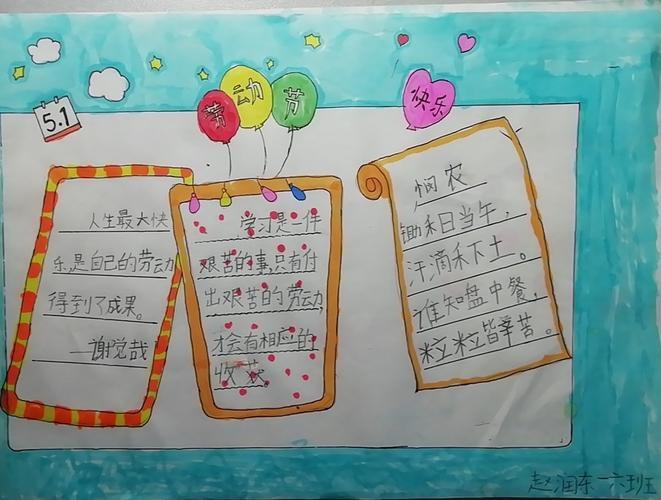 5.1
劳动节
快乐
人生最大快
乐,是自己的劳动
得到了成果。
—谢觉哉
学习是一件
艰苦的事,只有付
出艰苦的劳动,
才会有相应的
收获
悯农
锄禾日当午,
汗滴禾下土。
谁知盘中餐,
粒粒皆辛苦。
赵润东一六班